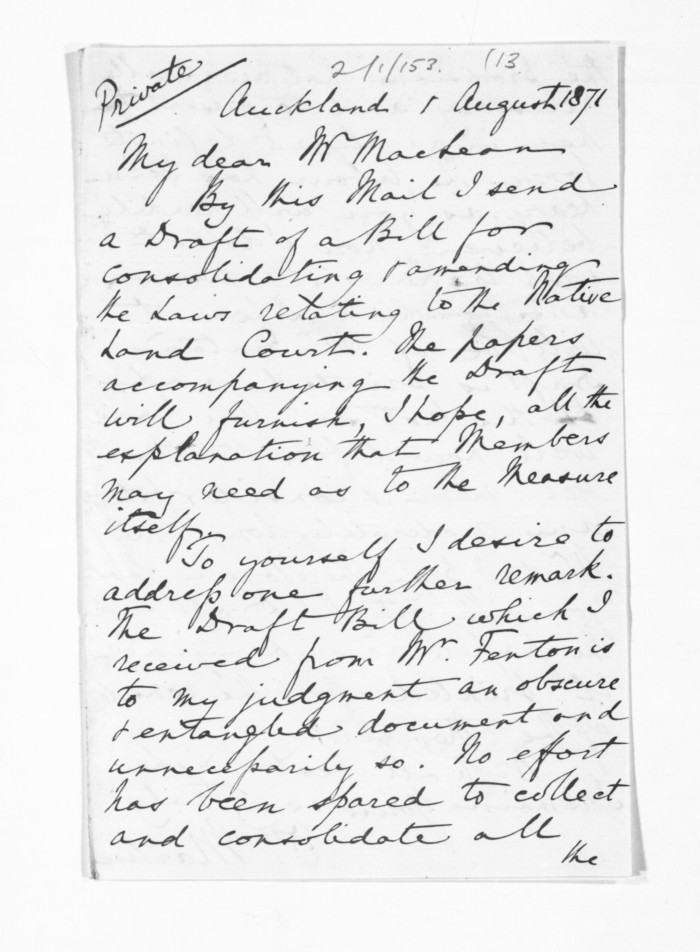 Private
2/1/153. (13
Auckland 1 August 1871
My dear Mr MacLean
By this Mail I send
a Draft of a Bill for
consolidating & amending
the Laws relating to the Native
Land Court. The papers
accompanying the Draft
will furnish, I hope, all the
explanation that Members
may need as to the Measure
itself.
To yourself I desire to
address one further remark.
The Draft Bill which I
received from Mr. Fenton is
to my judgment an obscure
& entangled document and
unnecessarily so. No effort
has been spared to collect
and consolidate all
the